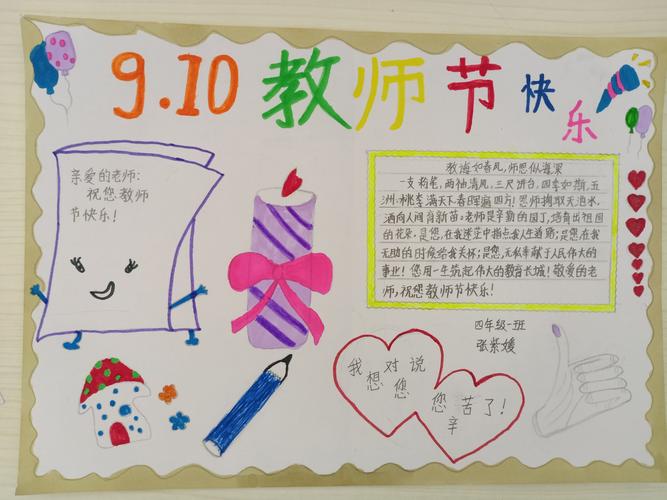 9.10教师节快乐
亲爱的老师:
祝您教师
节快乐!
教诲如春风,师恩似海深
一支粉笔,两袖清风,三尺讲台,四季如斯,五
洲桃李满天下,春晖遍四方!您师摘取天池水,
洒向人间育新苗,老师是辛勤的园丁,培育出祖国
的花朵,是您,在我迷茫中指点我人生道路;是您,在我
无助的时候给我关怀;是您,无私奉献于人民伟大的
事业!您用一生筑起伟大的教育长城!敬爱的老
师,祝您教师节快乐!
四年级一班
张紫媛
我想对您说
您辛苦了!